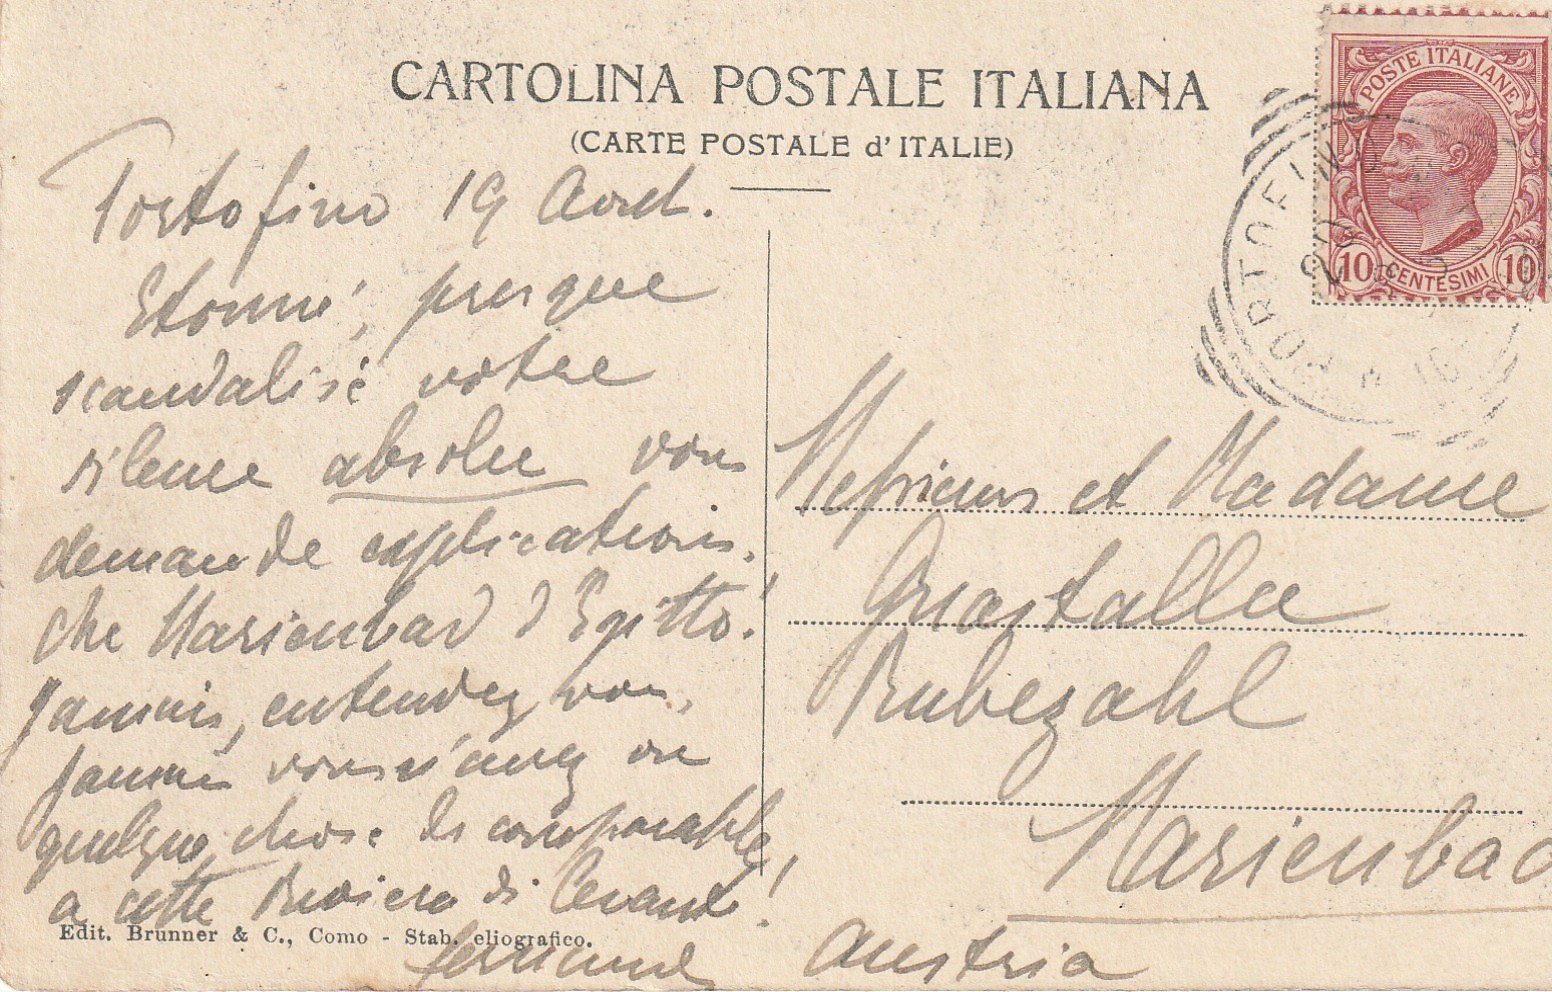 CARTOLINA POSTALE ITALIANA
(CARTE POSTALE d'ITALIE)
POSTE ITALIANE
10 CENTESIMI 10
PORTOFINO
Portofino 19 Aout.
Etonné, presque
scandalisé votre
silence absolu vous
demande explications.
Che Marienbad d'Egitto!
Jamais, entendez vous,
jamais vous n'avez vu
quelque chose de comparable
a cette Riviera di Levante!
Edit. Brunner & C., Como - Stab. eliografico.
Messieurs et Madame
Guastalla
Rubezahl
Marienbad
Austria